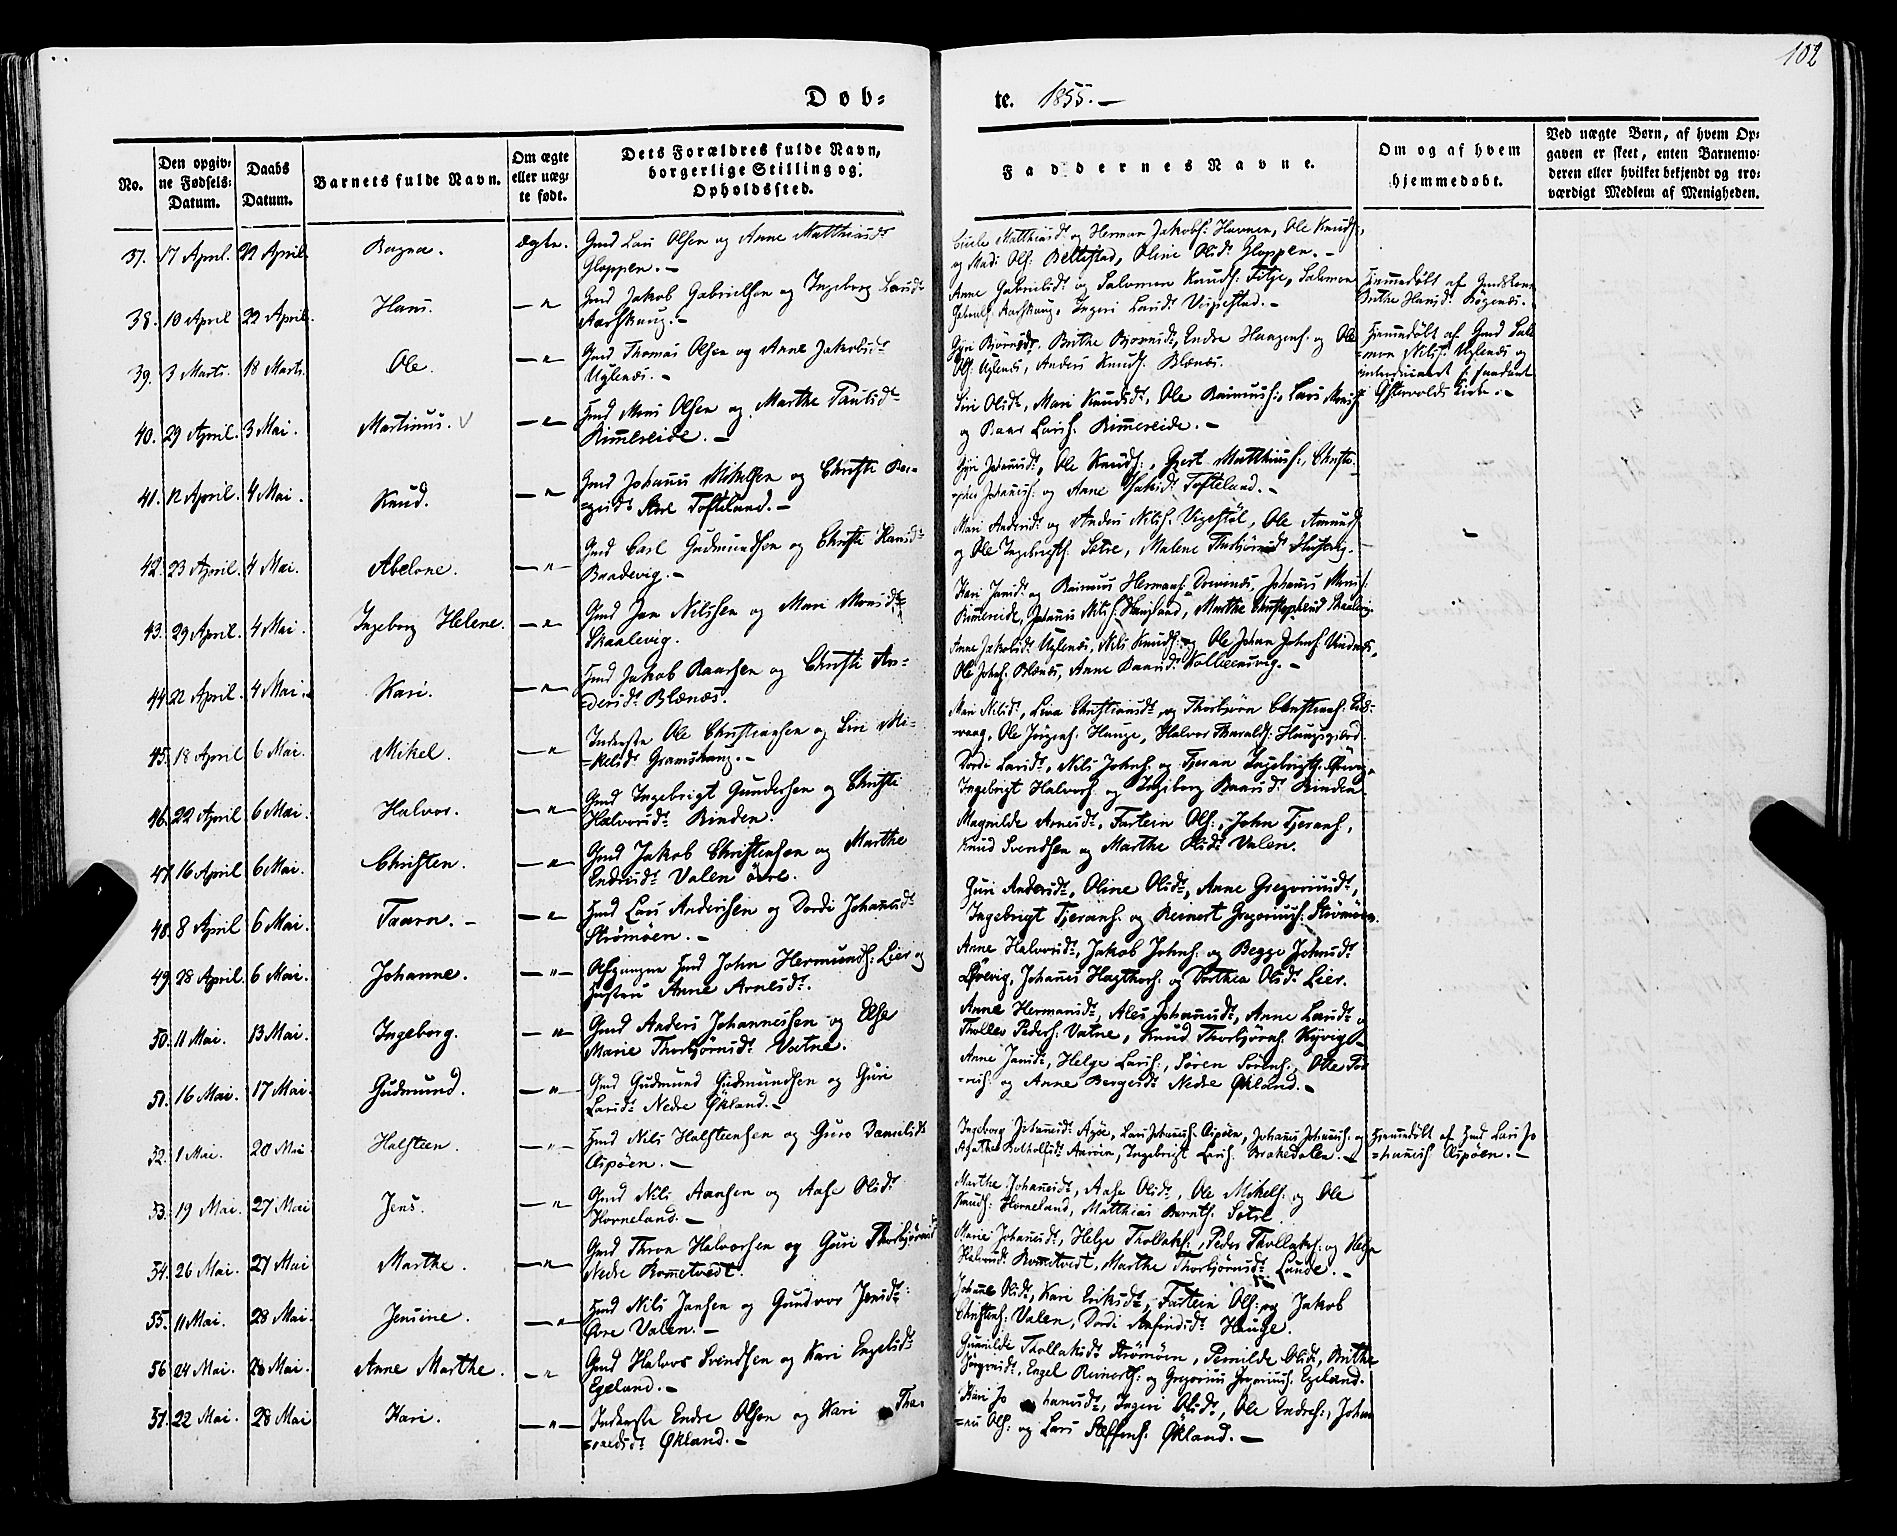 102
Døb-
te. 1855. —
No.
Den opgiv-
ne Fødsels-
Datum.
Daabs
Datum.
Barnets fulde Navn.
Om ægte
eller uæg-
te født.
Dets Forældres fulde Navn,
borgerlige Stilling og
Opholdssted.
Faddernes Navne.
Om og af hvem
hjemmedøbt.
Ved uægte Børn, af hvem Op-
gaven er skeet, enten Barnemo-
deren eller hvilket bekjendt og tro-
værdigt Medlem af Menigheden.
37. 17 April. 22 April. Ragna. ægte. Gmd Lars Olsen og Anne Matthiasdt
Gloppen. —
Matthiasdt og Herman Jakobs: Havnen, Ole Knuds:,
og Mads Ols: Beltestad, Oline Olsdt Gloppen. —
38. 10 April 22 April. Hans. — " Gmd Jakob Gabrielsen og Ingeborg Larsdt
Aarskaug. —
Anne Gabrielsdt og Salomon Knuds: Fitje, Salomon
Aarskaug, Ingeri Larsdt Vispestad. —
Hjemmedøbt af
Brithe Hansdt Røgenes. —
39. 3 Marts. 18 Marts. Ole. — " Gmd Thomas Olsen og Anne Jakobsdt
Uglenes. —
Gjøri Bjørnsdt. Brithe Bjørnsdt, Endre Haagens: og Ole
Ols: Uglenes, Anders Knuds: Blænes.
Hjemmedøbt af Gmd Salo
=mon Nils: Uglenes og
40. 29 April. 3 Mai. Martinus. — " Hmd Mons Olsen og Marthe Paulsdt
Rimmereide. —
Siri Olsdt, Mari Knudsdt, Ole Rasmus:, Lars Mons:
og Baar Lars: Rimmereide. —
41. 12 April. 4 Mai. Knud. — " Gmd Johannes Mikelsen og Christi Ber-
=gesdt Store Tofteland. —
Gjøri Johannesdt, Ole Knuds:, Gjert Matthias:, Christo-
=pher Johannes: og Anne Tofteland. —
42. 23 April. 4 Mai. Abelone. — " Gmd Carl Gudmundsen og Christi Hansdt
Baadevig. —
Mari Andersdt og Anders Nils: Vigestøl, Ole Amunds:
og Ole Ingebrigts: Sætre, Malene Thorbjørnsdt
43. 29 April. 4 Mai. Ingeborg Helene. — " Gmd Jan Nilssen og Mari Monsdt
Skaalevig.
Kari Jansdt og Rasmus Hermans: Johannes Mons:
Rimmereide, Johannes Nils: Haugland, Marthe Christophersdt Skaalevig.
44. 22 April. 4 Mai. Kari. — " Hmd Jakob Baarsen og Christi An-
=dersdt Blænes.
Anne Jakobsdt Uglenes, Nils Knuds: og Ole Johan Johns:
Ole Johns: Blænes, Anne Baarsdt Kolbeensvig. —
45. 18 April 6 Mai. Mikel. — " Inderste Ole Christiansen og Siri Mi-
=kelsdt Gramshaug. —
Mari Nilsdt, Lisa Christiansdt, og Thorbjørn Christians:
=vaag, Ole Jørgens: Hauge, Halvor Haralds: Haugsgjerd.
46. 22 April 6 Mai. Halvor. — " Gmd Ingebrigt Gundersen og Christi
Halvorsdt Rinden.
Dordi Larsdt, Nils Johns: og Tjeran Ingebrigts: Øvevig.
Ingebrigt Halvors: og Ingeborg Baarsdt Rinden.
47. 16 April 6 Mai. Christen. — " Gmd Jakob Christensen og Marthe
Endresdt Valen øvre.
Magnilde Arnesdt, Fartein Ols:, John Tjerans:,
Knud Svendsen og Marthe Olsdt Valen.
48. 8 April 6 Mai. Taarn. — — " Hmd Lars Andersen og Dordi Johannesdt
Strømøen. —
Guri Andersdt, Oline Olsdt, Anne Gregoriusdt,
Ingebrigt Tjerans: og Reinert Gregorius: Strømøen.
49. 28 April. 6 Mai. Johanne. — " — Afgangne Hmd John Hermunds: Lier og
Hustru Anne Arnesdt.
Anne Halvorsdt, Jakob Johns: og Begge Johnsdt
Øvevig, Johannes Hagthors: og Dorthea Olsdt Lier.
50. 11 Mai. 13 Mai. Ingeborg. — " Gmd Anders Johannessen og Else
Marie Thorbjørnsdt Vatne.
Anne Hermansdt, Ales Johannesdt, Anne Larsdt og
Tholles Peders: Vatne, Knud Thorbjørns: Kyvig —
51. 16 Mai. 17 Mai. Gudmund. — " Gmd Gudmund Gudmundsen og Guri
Larsdt Nedre Økland. —
Anne Jansdt, Helge Lars:, Søren Sørens:, Ole Tor-
=ris: og Anne Bergesdt Nedre Økland. —
52. 1 Mai. 20 Mai. Halsteen. — " Hmd Nils Halsteensen og Guro Danielsdt
Aspøen. —
Ingeborg Johannesdt Agøe, Lars Johannes: Aspøen, Johannes Johannes: og
Agathe Aarøen, Ingebrigt Lars: Brakedalen. —
Hjemmedøbt af Hmd Lars Jo
=hannes: Aspøen. —
53. 19 Mai. 27 Mai Jens. — " Gmd Nils Aansen og Aase Olsdt
Horneland. —
Marthe Johannesdt, Aase Olsdt, Ole Mikels: og Ole
Knuds: Horneland, Matthias Bernts: Sætre.
54. 26 Mai. 27 Mai Marthe. — " Gmd Thron Halvorsen og Guri Thorbjørnsdt
Nedre Rometvedt.
Marie Johannesdt, Helge Thollaks:, Peder Thollaks: og Helge
Halvorsdt Rometvedt, Marthe Thorbjørnsdt Lunde. —
55. 11 Mai. 28 Mai. Jensine. — " Hmd Nils Jansen og Gundvor Jensdt
Øvre Valen. —
Johanne Olsdt, Kari Eriksdt, Fartein Ols: og Jakob
Christens: Valen, Dordi Anfindsdt Hauge.
56. 24 Mai. 28 Mai. Anne Marthe. — " Gmd Halvor Svendsen og Kari Engelsdt
Egeland. —
Gunnilde Thollaksdt Strømøen, Pernilde Olsdt, Brithe
Jørgensdt, Engel Reinerts: og Gregorius Gregorius: Egeland.
57. 22 Mai. 28 Mai Kari. — " Inderste Endre Olsen og Kari Tho-
=medsdt Økland. —
Kari Johannesdt, Ingeri Olsdt, Ole Endres:, Johan-
=nes Ols: og Lars Steffens: Økland. —